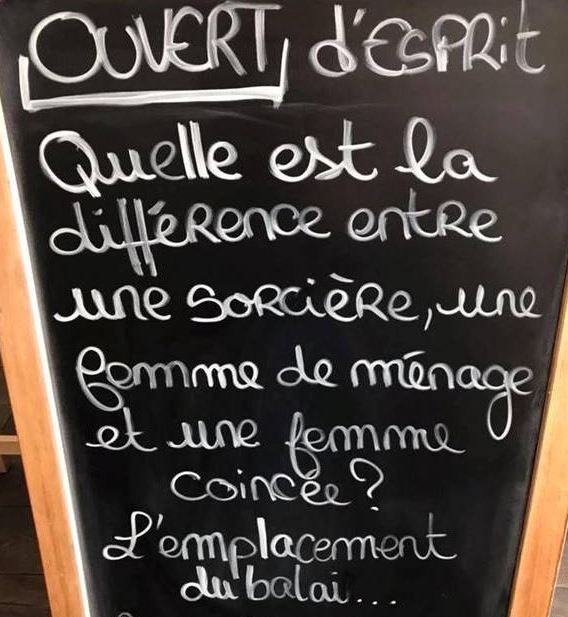 OUVERT d'ESPRit
Quelle est la
différence entre
une sorcière, une
femme de ménage
et une femme
coincée ?
L'emplacement
du balai...